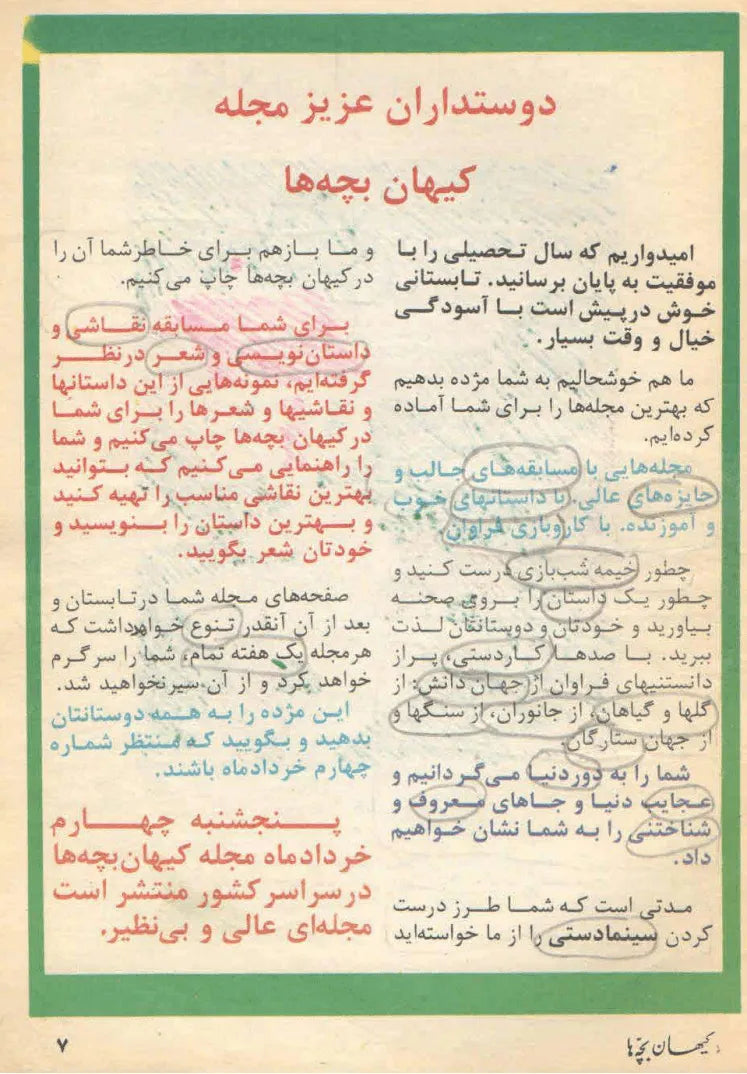 دوستداران عزیز مجله
کیهان بچه‌ها
امیدواریم که سال تحصیلی را با
موفقیت به پایان برسانید. تابستانی
خوش درپیش است با آسودگی
خیال و وقت بسیار.
ما هم خوشحالیم به شما مژده بدهیم
که بهترین مجله‌ها را برای شما آماده
کرده‌ایم.
مجله‌هایی با مسابقه‌های جالب و
جایزه‌های عالی. با داستانهای خوب
و آموزنده. با کاروبازی فراوان
چطور خیمه شب‌بازی درست کنید و
چطور یک داستان را بروی صحنه
بیاورید و خودتان و دوستانتان لذت
ببرید. با صدها کاردستی، پراز
دانستنیهای فراوان از جهان دانش: از
گلها و گیاهان، از جانوران، از سنگها و
از جهان ستارگان.
شما را به دوردنیا می‌گردانیم و
عجایب دنیا و جاهای معروف و
شناختنی را به شما نشان خواهیم
داد.
مدتی است که شما طرز درست
کردن سینمادستی را از ما خواسته‌اید
و ما بازهم برای خاطرشما آن را
درکیهان بچه‌ها چاپ می‌کنیم.
برای شما مسابقه نقاشی و
داستان‌نویسی و شعر درنظر
گرفته‌ایم، نمونه‌هایی از این داستانها
و نقاشیها و شعرها را برای شما
درکیهان بچه‌ها چاپ می‌کنیم و شما
را راهنمایی می‌کنیم که بتوانید
بهترین نقاشی مناسب را تهیه کنید
و بهترین داستان را بنویسید و
خودتان شعر بگویید.
صفحه‌های مجله شما درتابستان و
بعد از آن آنقدر تنوع خواهدداشت که
هرمجله یک هفته تمام، شما را سرگرم
خواهد کرد و از آن سیرنخواهید شد.
این مژده را به همه دوستانتان
بدهید و بگویید که منتظر شماره
چهارم خردادماه باشند.
پنجشنبه چهارم
خردادماه مجله کیهان‌بچه‌ها
درسراسرکشور منتشر است
مجله‌ای عالی و بی‌نظیر.
کیهان بچّه‌ها
۷